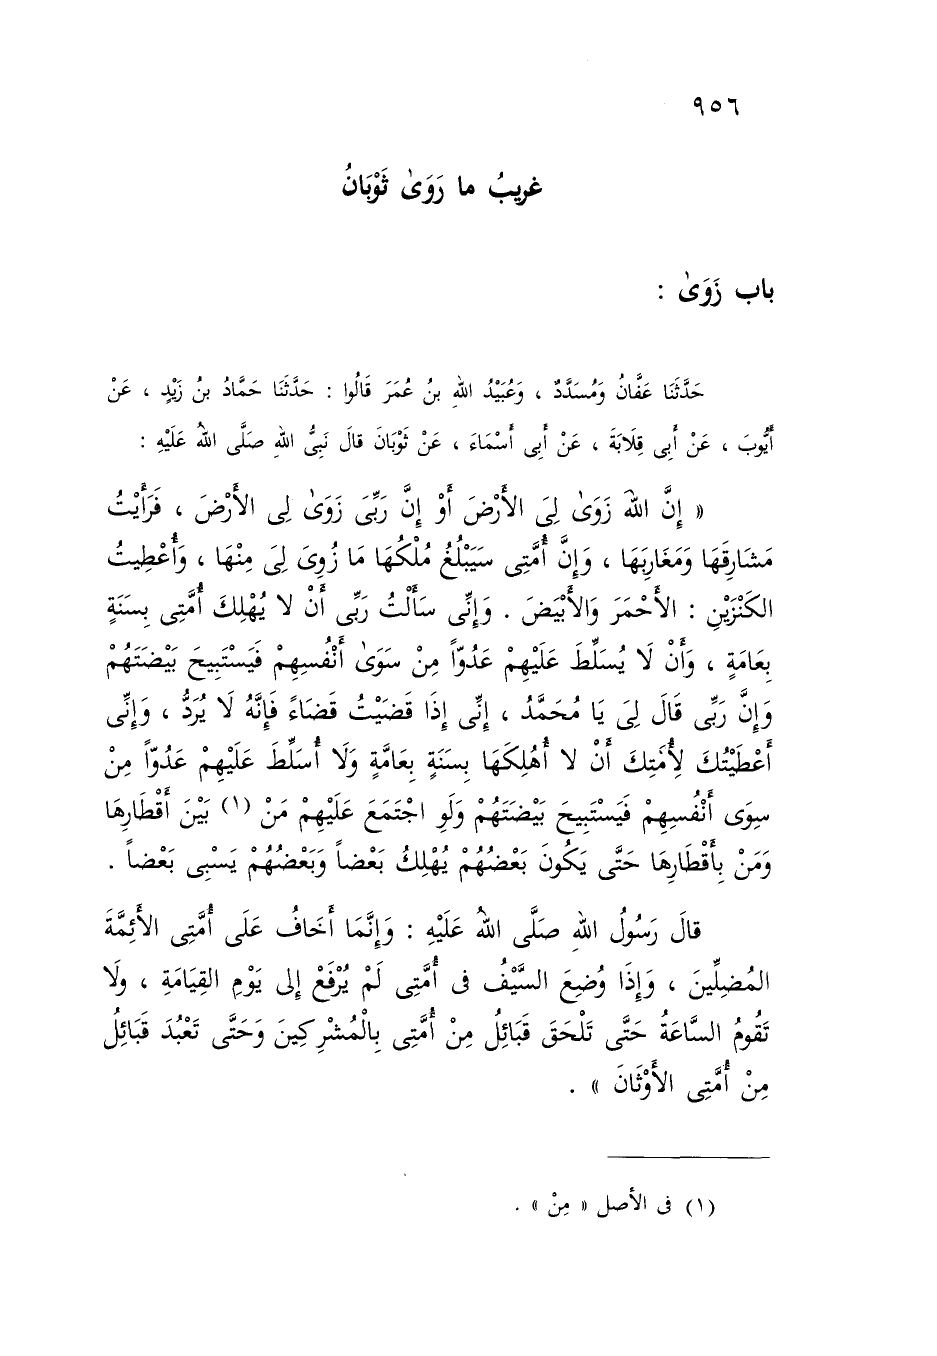 ٩٥٦
غريبُ ما رَوَىٰ ثَوْبَانُ
باب زَوَىٰ :
حَدَّثَنَا عَفَّانُ وَمُسَدَّدٌ ، وَعُبَيْدُ اللهِ بنُ عُمَرَ قَالُوا : حَدَّثَنَا حَمَّادُ بنُ زَيْدٍ ، عَنْ
أَيُّوبَ ، عَنْ أَبِى قِلَابَةَ ، عَنْ أَبِى أَسْمَاءَ ، عَنْ ثَوْبَانَ قالَ نَبِىُّ اللهِ صَلَّى اللهُ عَلَيْهِ :
« إِنَّ اللهَ زَوَىٰ لِىَ الأَرْضَ أَوْ إِنَّ رَبِّىَ زَوَىٰ لِى الأَرْضَ ، فَرَأَيْتُ
مَشَارِقَهَا وَمَغَارِبَهَا ، وَإِنَّ أُمَّتِى سَيَبْلُغُ مُلْكُهَا مَا زُوِىَ لِىَ مِنْهَا ، وَأُعْطِيتُ
الكَنْزَيْنِ : الأَحْمَرَ وَالأَبْيَضَ . وَإِنِّى سَأَلْتُ رَبِّى أَنْ لا يُهْلِكَ أُمَّتِى بِسَنَةٍ
بِعَامَةٍ ، وَأَنْ لَا يُسَلِّطَ عَلَيْهِمْ عَدُوّاً مِنْ سَوَىٰ أَنْفُسِهِمْ فَيَسْتَبِيحَ بَيْضَتَهُمْ
وَإِنَّ رَبِّى قَالَ لِىَ يَا مُحَمَّدُ ، إِنِّى إِذَا قَضَيْتُ قَضَاءً فَإِنَّهُ لَا يُرَدُّ ، وَإِنِّى
أَعْطَيْتُكَ لِأُمَّتِكَ أَنْ لا أُهْلِكَهَا بِسَنَةٍ بِعَامَّةٍ وَلَا أُسَلِّطَ عَلَيْهِمْ عَدُوّاً مِنْ
سِوَى أَنْفُسِهِمْ فَيَسْتَبِيحَ بَيْضَتَهُمْ وَلَوِ اجْتَمَعَ عَلَيْهِمْ مَنْ (١) بَيْنَ أَقْطَارِهَا
وَمَنْ بِأَقْطَارِهَا حَتَّى يَكُونَ بَعْضُهُمْ يُهْلِكُ بَعْضاً وَبَعْضُهُمْ يَسْبِى بَعْضاً .
قالَ رَسُولُ اللهِ صَلَّى اللهُ عَلَيْهِ : وَإِنَّمَا أَخَافُ عَلَى أُمَّتِى الأَئِمَّةَ
المُضِلِّينَ ، وَإِذَا وُضِعَ السَّيْفُ فى أُمَّتِى لَمْ يُرْفَعْ إِلى يَوْمِ القِيَامَةِ ، ولَا
تَقُومُ السَّاعَةُ حَتَّى تَلْحَقَ قَبَائِلُ مِنْ أُمَّتِى بِالْمُشْرِكِينَ وَحَتَّى تَعْبُدَ قَبَائِلُ
مِنْ أُمَّتِى الأَوْثَانَ » .
(١) فى الأصل « مِنْ » .